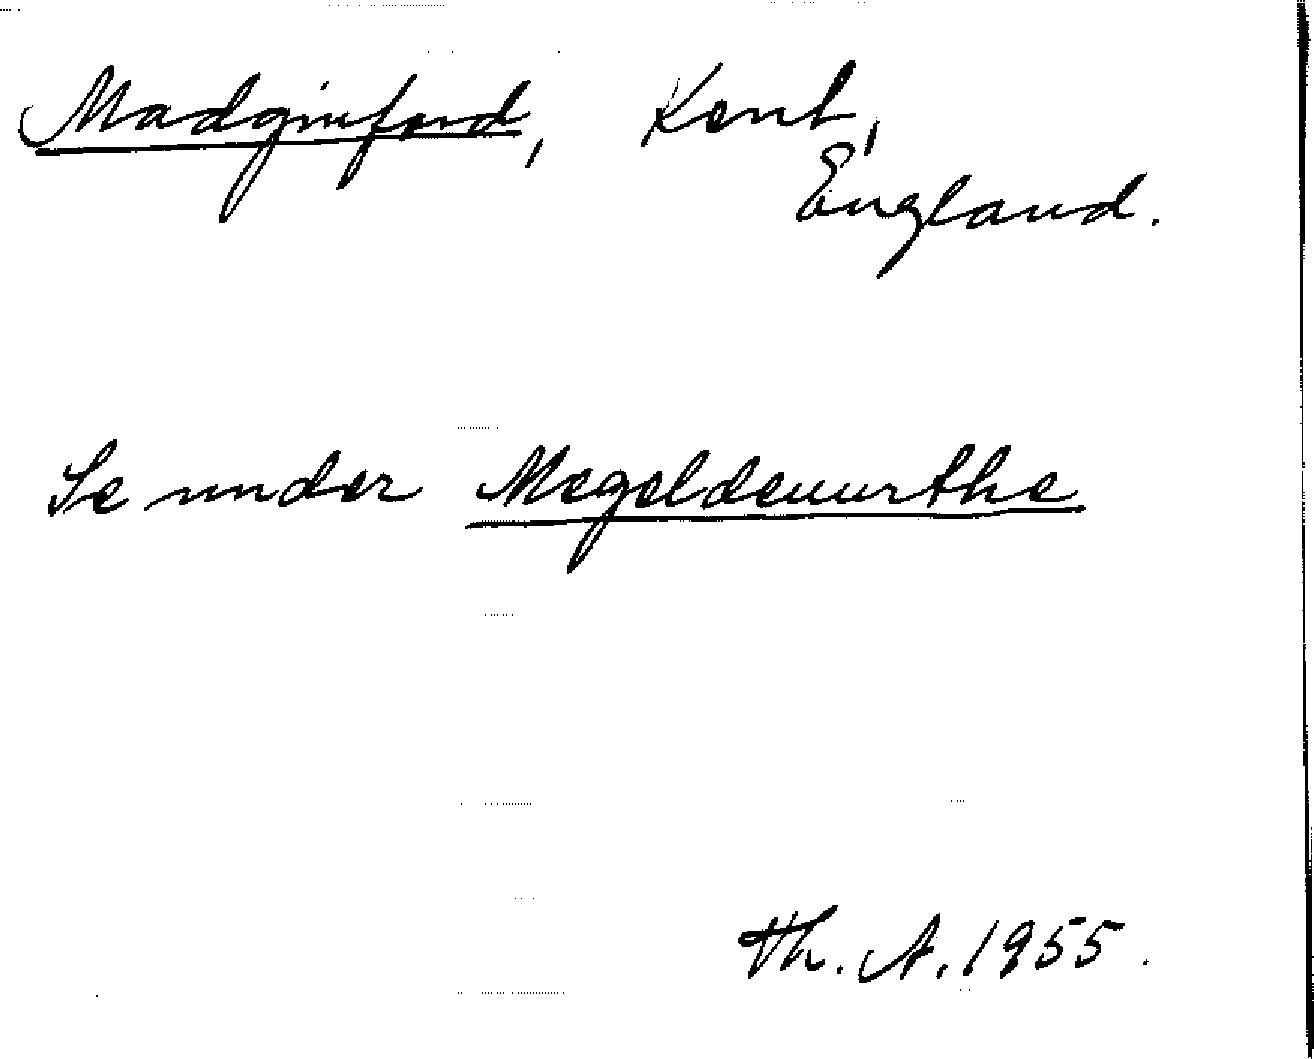 Madginford, Kent,
England.
Se under Megeldewurthe
Th. A. 1955.